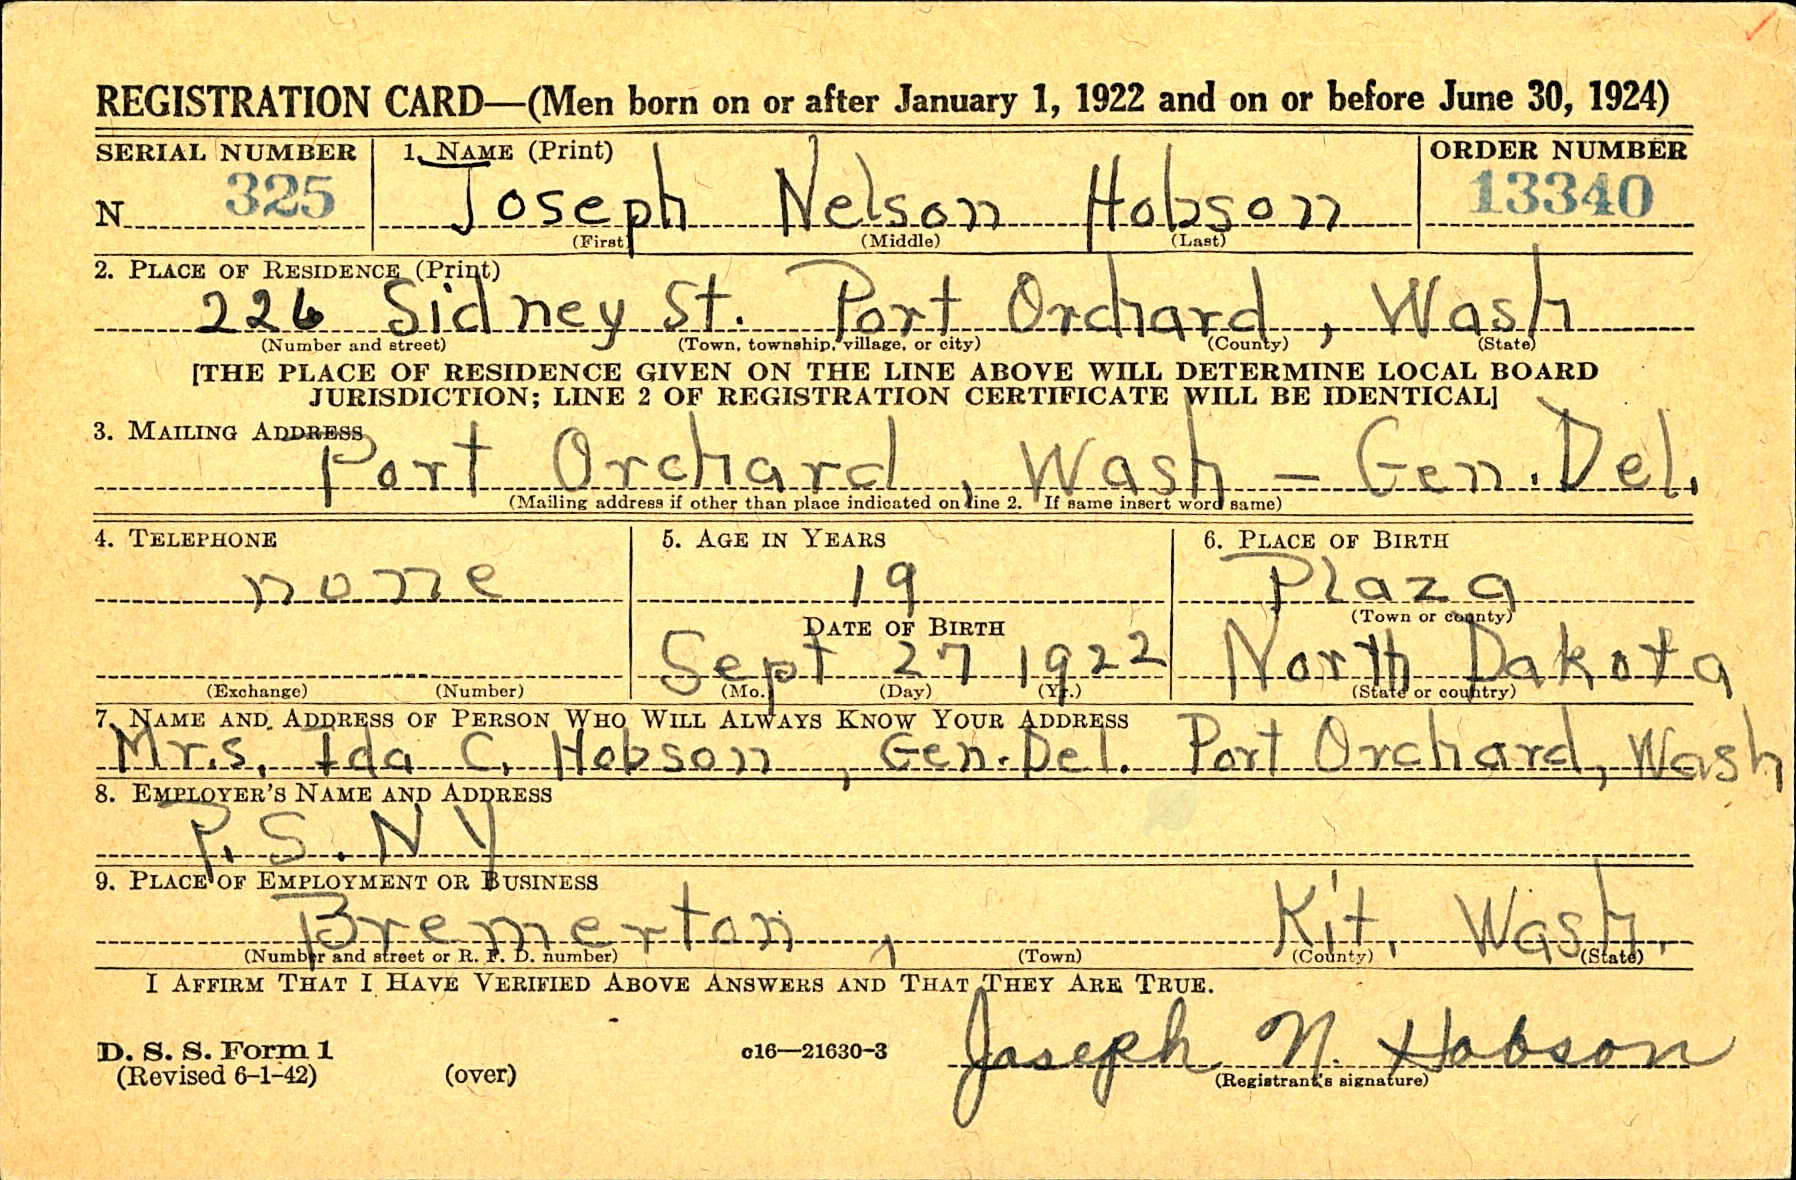 REGISTRATION CARD—(Men born on or after January 1, 1922 and on or before June 30, 1924)
SERIAL NUMBER 1. NAME (Print) ORDER NUMBER
N 325 Joseph Nelson Hobson 13340
(First) (Middle) (Last)
2. PLACE OF RESIDENCE (Print)
226 Sidney St. Port Orchard, Wash
(Number and street) (Town, township, village, or city) (County) (State)
[THE PLACE OF RESIDENCE GIVEN ON THE LINE ABOVE WILL DETERMINE LOCAL BOARD
JURISDICTION; LINE 2 OF REGISTRATION CERTIFICATE WILL BE IDENTICAL]
3. MAILING ADDRESS
Port Orchard, Wash — Gen. Del.
(Mailing address if other than place indicated on line 2. If same insert word same)
4. TELEPHONE 5. AGE IN YEARS 6. PLACE OF BIRTH
none 19 Plaza
(Town or county)
DATE OF BIRTH
Sept 27 1922 North Dakota
(Exchange) (Number) (Mo.) (Day) (Yr.) (State or country)
7. NAME AND ADDRESS OF PERSON WHO WILL ALWAYS KNOW YOUR ADDRESS
Mrs. Ida C. Hobson, Gen. Del. Port Orchard, Wash
8. EMPLOYER'S NAME AND ADDRESS
P. S. N Y
9. PLACE OF EMPLOYMENT OR BUSINESS
Bremerton, Kit. Wash.
(Number and street or R. F. D. number) (Town) (County) (State)
I AFFIRM THAT I HAVE VERIFIED ABOVE ANSWERS AND THAT THEY ARE TRUE.
D. S. S. Form 1
(Revised 6-1-42) (over) c16—21630-3 Joseph N. Hobson
(Registrant's signature)